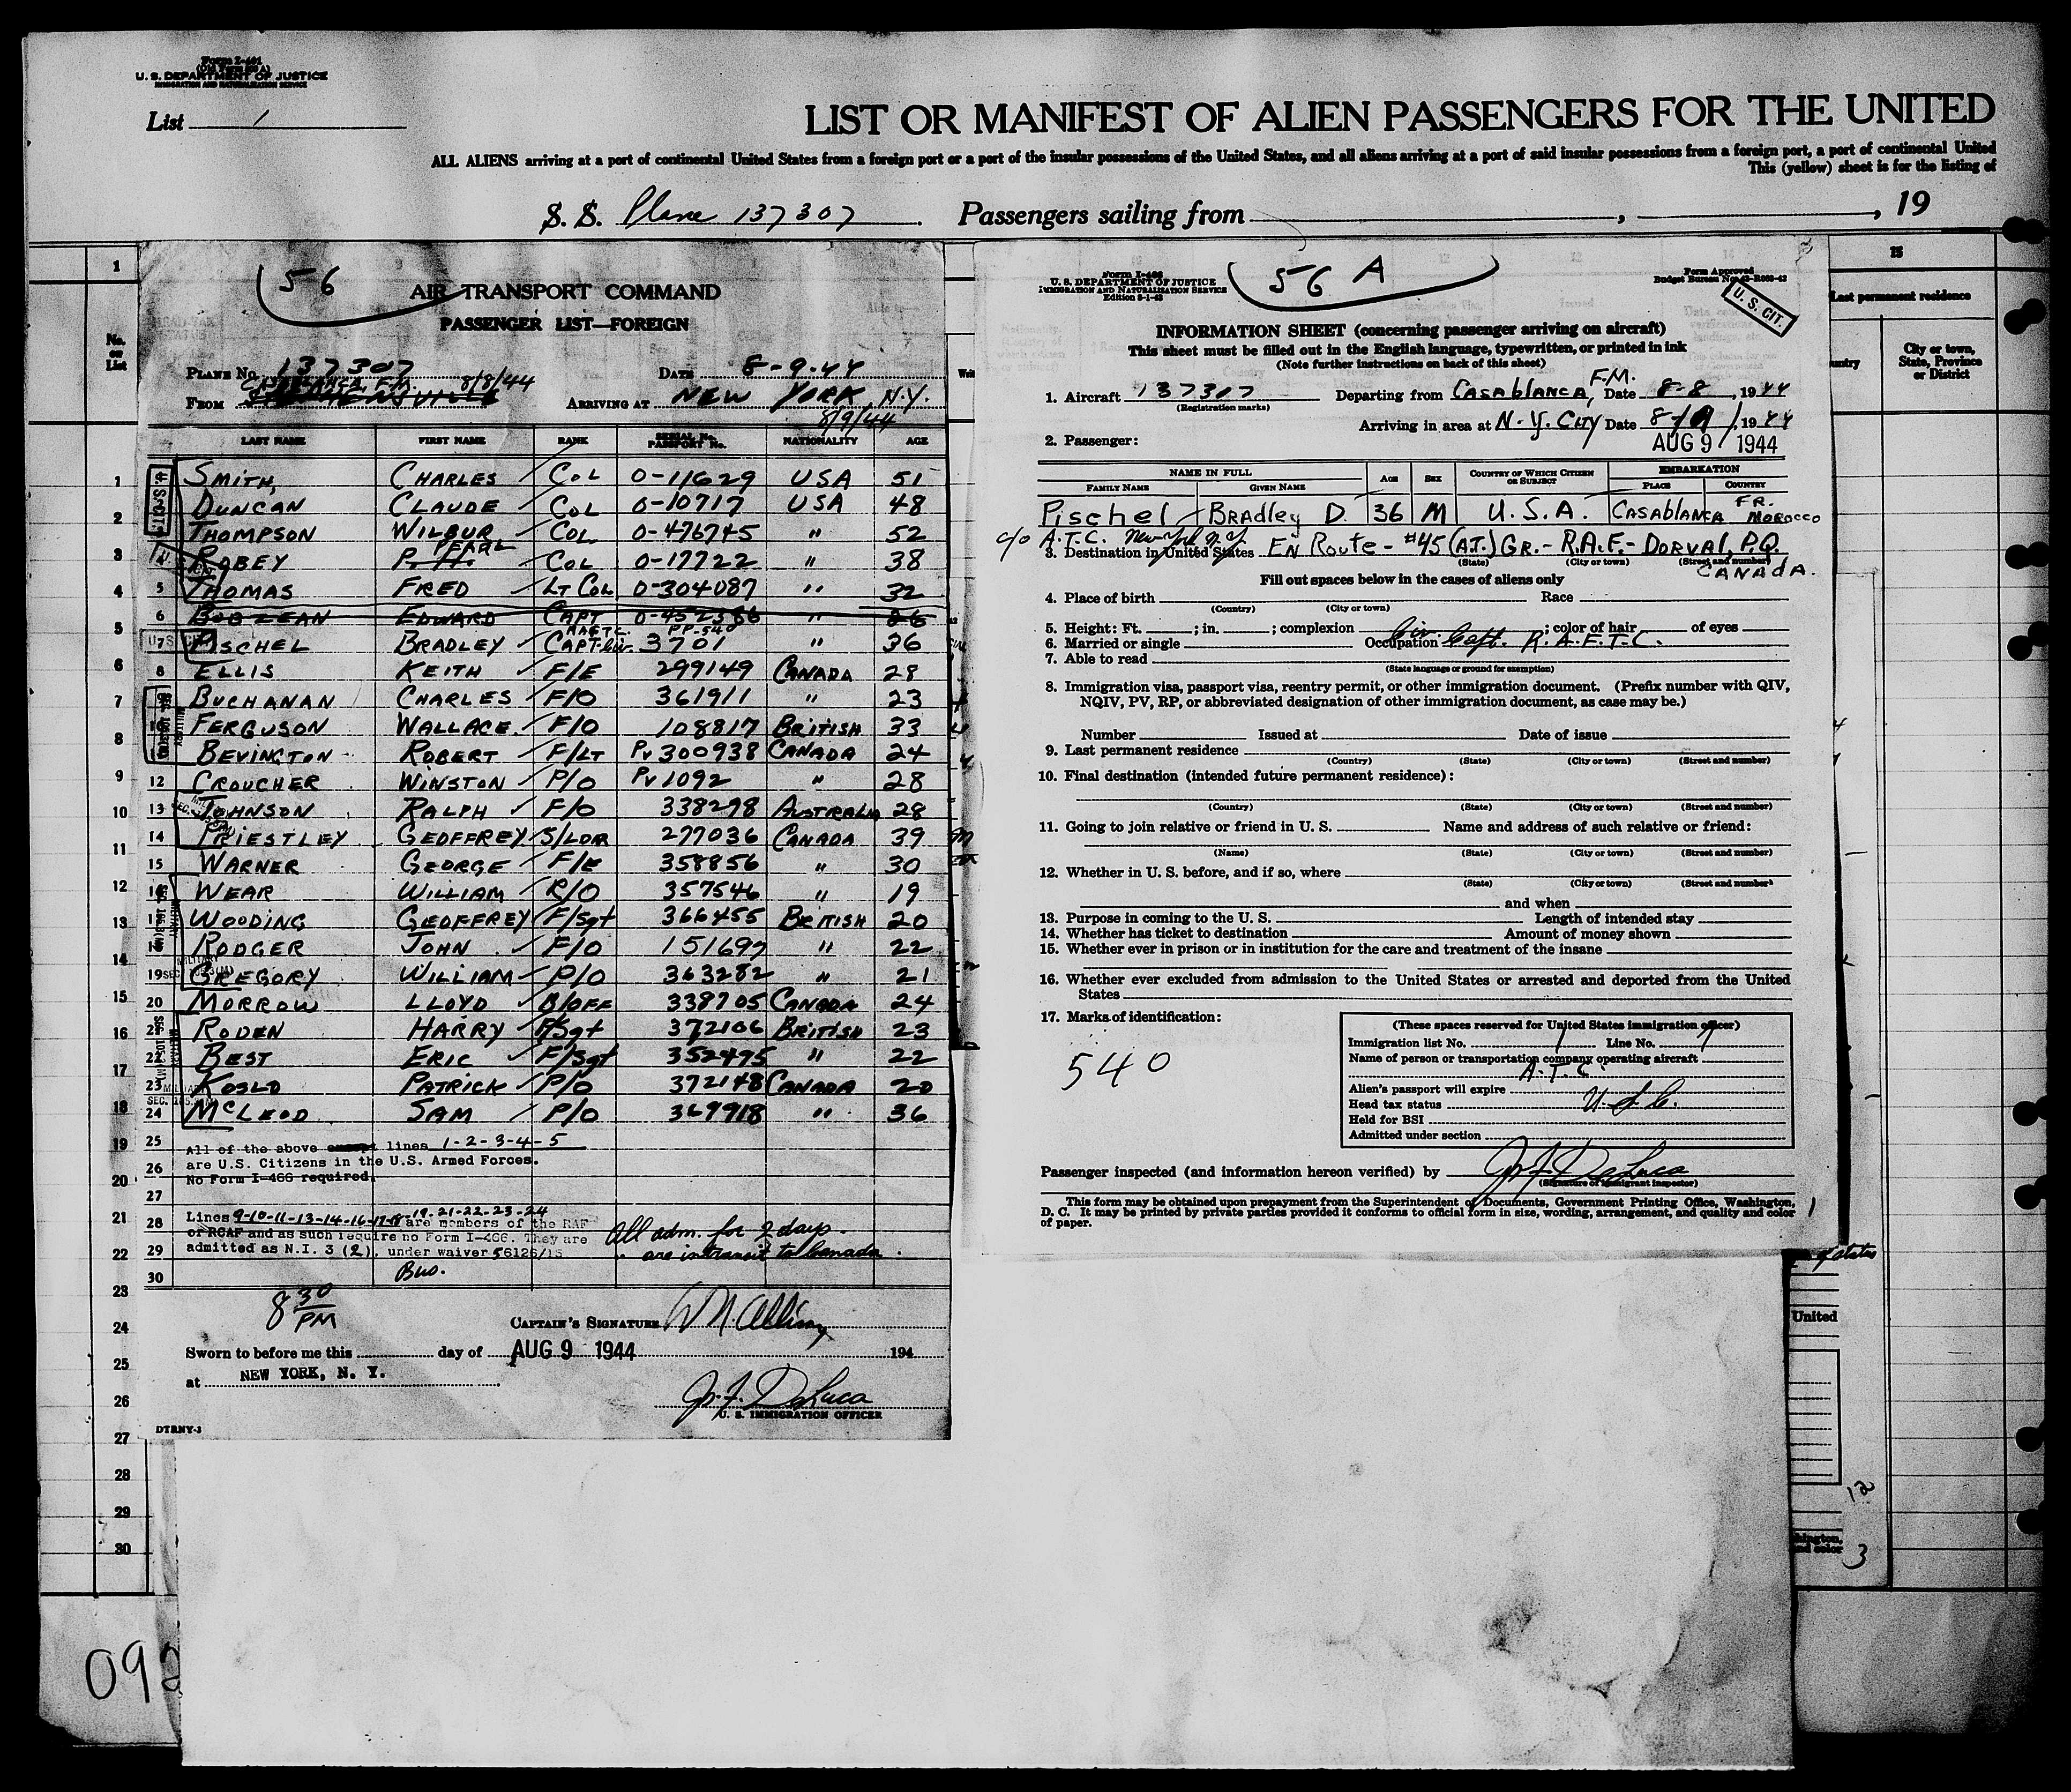 Form I-401
U. S. DEPARTMENT OF JUSTICE
IMMIGRATION AND NATURALIZATION SERVICE
List 1
LIST OR MANIFEST OF ALIEN PASSENGERS FOR THE UNITED
ALL ALIENS arriving at a port of continental United States from a foreign port or a port of the insular possessions of the United States, and all aliens arriving at a port of said insular possessions from a foreign port, a port of continental United
This (yellow) sheet is for the listing of
S. S. Plane 137307 Passengers sailing from , , 19
56
AIR TRANSPORT COMMAND
PASSENGER LIST—FOREIGN
PLANE No. 137307 DATE 8-9-44
CASABLANCA, F.M. 8/8/44
FROM ARRIVING AT NEW YORK, N.Y.
8/9/44
LAST NAME FIRST NAME RANK SERIAL No. PASSPORT No. NATIONALITY AGE
SMITH, CHARLES COL O-11629 USA 51
DUNCAN CLAUDE COL O-10717 USA 48
THOMPSON WILBUR COL. O-476745 " 52
PEARL
ROBEY P. H. COL O-17722 " 38
5 THOMAS FRED LT COL O-304087 " 32
6 EDWARD CAPT " 26
7 PISCHEL BRADLEY CAPT-Civ. RAFTC. PP-540 3701 " 36
8 ELLIS KEITH F/E 299149 CANADA 28
BUCHANAN CHARLES F/O 361911 " 23
10 FERGUSON WALLACE F/O 108817 BRITISH 33
BEVINGTON ROBERT F/LT Pv 300938 CANADA 24
12 CROUCHER WINSTON P/O Pv 1092 " 28
13 JOHNSON RALPH F/O 338298 AUSTRALIA 28
14 PRIESTLEY GEOFFREY S/LDR 277036 CANADA 39
15 WARNER GEORGE F/E 358856 " 30
WEAR WILLIAM R/O 357546 " 19
WOODING GEOFFREY F/Sgt 366455 BRITISH 20
RODGER JOHN F/O 151697 " 22
19 GREGORY WILLIAM P/O 363282 " 21
20 MORROW LLOYD R/OFF 338705 CANADA 24
RODEN HARRY F/Sgt 372106 BRITISH 23
22 BEST ERIC F/Sgt 352495 " 22
23 KOSLO PATRICK P/O 372148 CANADA 20
24 McLEOD SAM P/O 369918 " 36
25 All of the above except lines 1-2-3-4-5
26 are U.S. Citizens in the U.S. Armed Forces.
No Form I-466 required.
27
28 Lines 9-10-11-13-14-16-17-18-19-21-22-23-24 are members of the RAF
or RCAF and as such require no Form I-466. They are
29 admitted as N.I. 3 (2). under waiver 56126/13
All adm. for 2 days.
are in transit to Canada.
30
8 30 PM
CAPTAIN'S SIGNATURE
Sworn to before me this day of AUG 9 1944 194
at NEW YORK, N. Y.
J. F. DeLuca
U. S. IMMIGRATION OFFICER
DTRNY-3
Form I-466
U. S. DEPARTMENT OF JUSTICE
IMMIGRATION AND NATURALIZATION SERVICE
Edition 2-1-43
56 A
Form Approved
U. S. CIT.
INFORMATION SHEET (concerning passenger arriving on aircraft)
This sheet must be filled out in the English language, typewritten, or printed in ink
(Note further instructions on back of this sheet)
1. Aircraft 137307 Departing from CASABLANCA, F.M. Date 8-8, 1944
(Registration marks)
Arriving in area at N.Y. CITY Date 8/9/, 1944
2. Passenger: AUG 9 1944
NAME IN FULL AGE SEX COUNTRY OF WHICH CITIZEN OR SUBJECT EMBARKATION
FAMILY NAME GIVEN NAME PLACE COUNTRY
Pischel BRADley D. 36 M U.S.A. CASABLANCA FR. MOROCCO
c/o A.T.C. New York N.Y.
3. Destination in United States EN ROUTE - #45 (A.T.) GR. - R.A.F. - DORVAL, P.Q.
(State) (City or town) (Street and number)
CANADA.
Fill out spaces below in the cases of aliens only
4. Place of birth Race
(Country) (City or town)
5. Height: Ft. ; in. ; complexion ; color of hair of eyes
6. Married or single Occupation Civ. Capt. R.A.F.T.C.
7. Able to read
(State language or ground for exemption)
8. Immigration visa, passport visa, reentry permit, or other immigration document. (Prefix number with QIV,
NQIV, PV, RP, or abbreviated designation of other immigration document, as case may be.)
Number Issued at Date of issue
9. Last permanent residence
(Country) (State) (City or town) (Street and number)
10. Final destination (intended future permanent residence):
(Country) (State) (City or town) (Street and number)
11. Going to join relative or friend in U. S. Name and address of such relative or friend:
(Name) (State) (City or town) (Street and number)
12. Whether in U. S. before, and if so, where
(State) (City or town) (Street and number)
and when
13. Purpose in coming to the U. S. Length of intended stay
14. Whether has ticket to destination Amount of money shown
15. Whether ever in prison or in institution for the care and treatment of the insane
16. Whether ever excluded from admission to the United States or arrested and deported from the United
States
17. Marks of identification:
540
(These spaces reserved for United States immigration officer)
Immigration list No. 1 Line No. 7
Name of person or transportation company operating aircraft
A.T.C.
Alien's passport will expire
Head tax status U.S.C.
Held for BSI
Admitted under section
Passenger inspected (and information hereon verified) by J. F. DeLuca
(Signature of immigrant inspector)
This form may be obtained upon prepayment from the Superintendent of Documents, Government Printing Office, Washington,
D. C. It may be printed by private parties provided it conforms to official form in size, wording, arrangement, and quality and color
of paper.
No. on List
1
2
3
4
5
6
7
8
9
10
11
12
13
14
15
16
17
18
19
20
21
22
23
24
25
26
27
28
29
30
15
Last permanent residence
City or town, State, Province or District
United
12
3
092